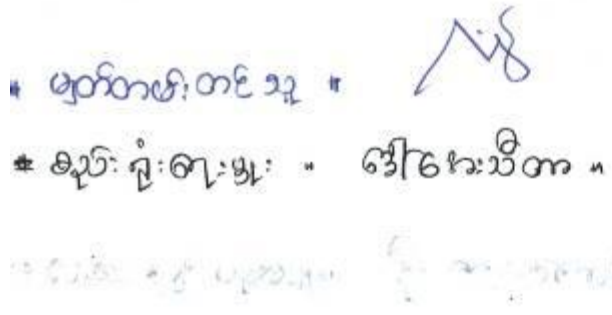 " မှတ်တမ်းတင်သူ "
* စည်းရုံးရေးမှူး " ဒေါ်အေးသီတာ "